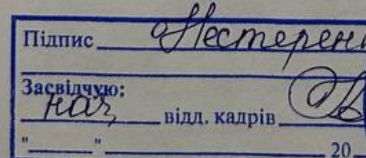 Підпис Нестерен
Засвідчую:
нач. відд. кадрів
"____"____ 20